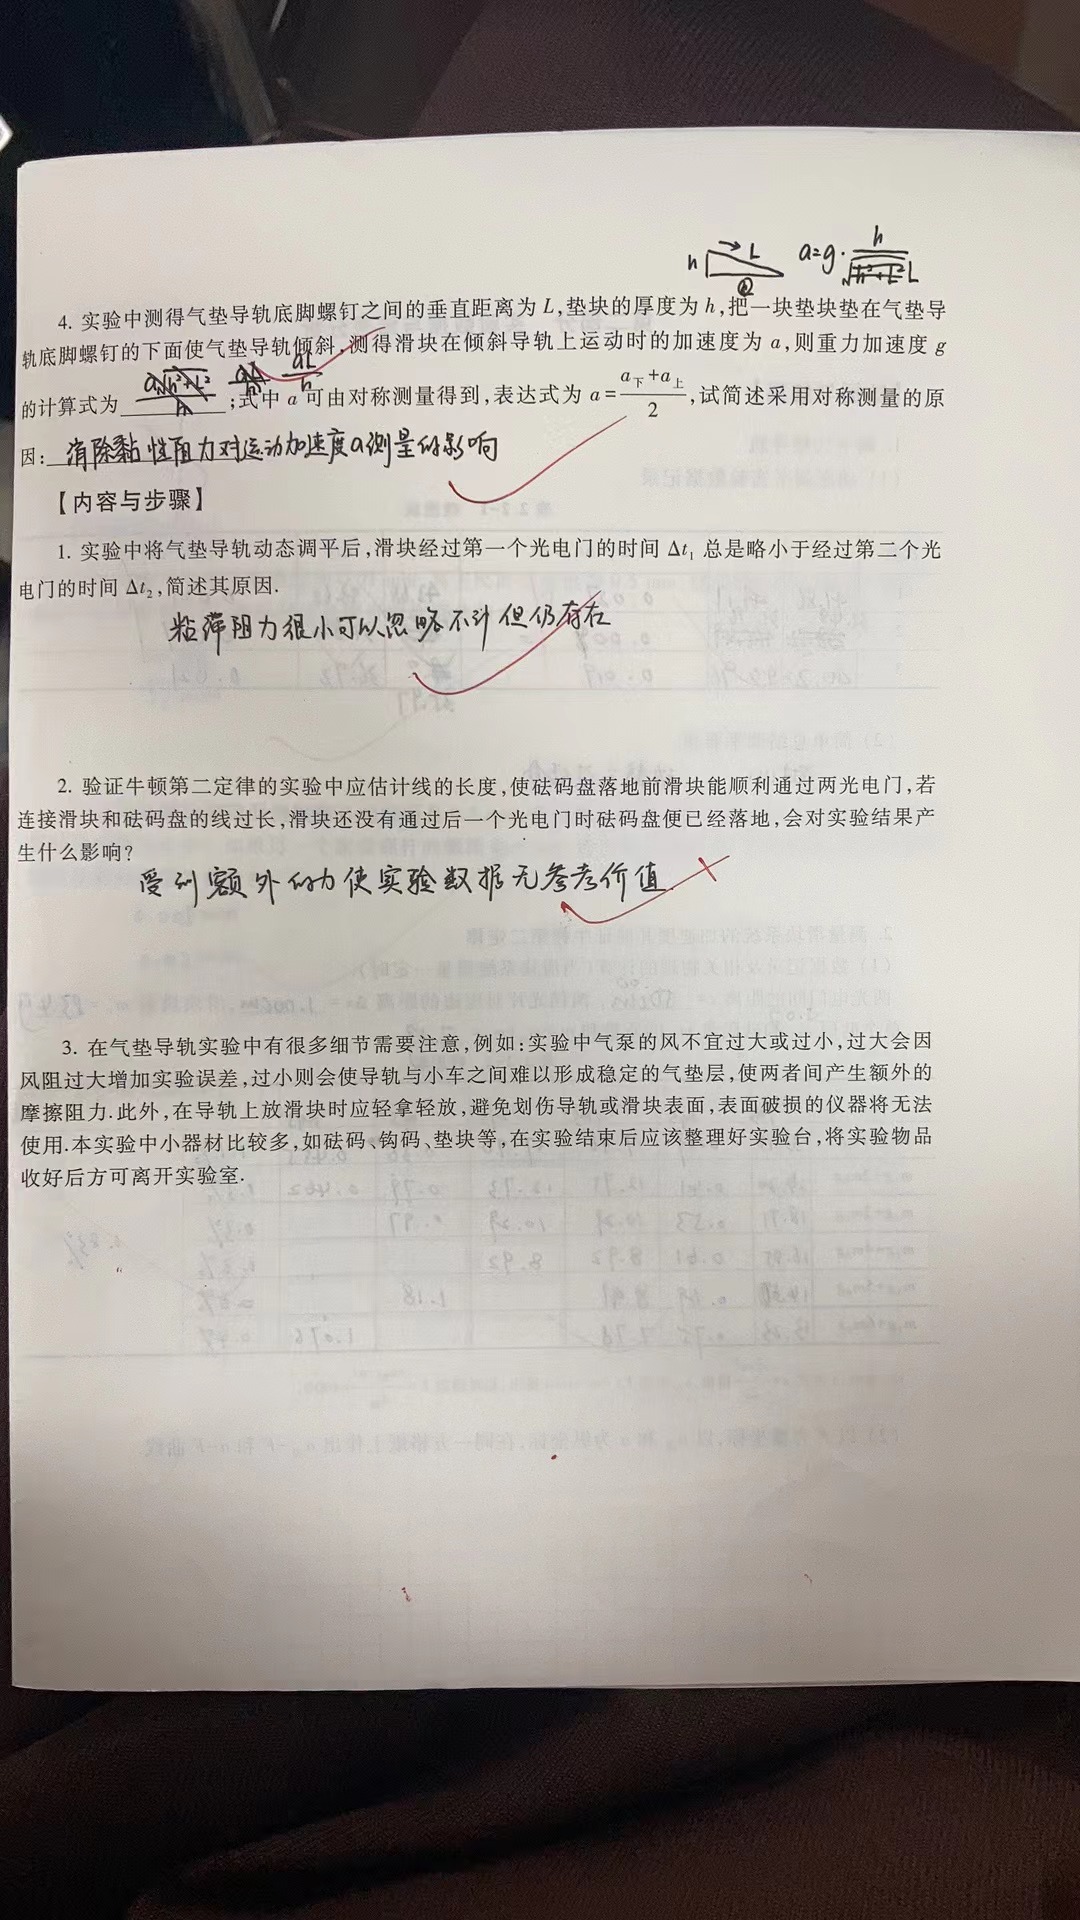 h L a=g·h/√(h²+L²) L
4. 实验中测得气垫导轨底脚螺钉之间的垂直距离为 L,垫块的厚度为 h,把一块垫块垫在气垫导
轨底脚螺钉的下面使气垫导轨倾斜,测得滑块在倾斜导轨上运动时的加速度为 a,则重力加速度 g
的计算式为 aL/h ;式中 a 可由对称测量得到,表达式为 a=(a下+a上)/2,试简述采用对称测量的原
因: 消除黏性阻力对运动加速度a测量的影响
【内容与步骤】
1. 实验中将气垫导轨动态调平后,滑块经过第一个光电门的时间 Δt₁ 总是略小于经过第二个光
电门的时间 Δt₂,简述其原因.
粘滞阻力很小可以忽略不计但仍存在
2. 验证牛顿第二定律的实验中应估计线的长度,使砝码盘落地前滑块能顺利通过两光电门,若
连接滑块和砝码盘的线过长,滑块还没有通过后一个光电门时砝码盘便已经落地,会对实验结果产
生什么影响?
受到额外的力使实验数据无参考价值.
3. 在气垫导轨实验中有很多细节需要注意,例如:实验中气泵的风不宜过大或过小,过大会因
风阻过大增加实验误差,过小则会使导轨与小车之间难以形成稳定的气垫层,使两者间产生额外的
摩擦阻力.此外,在导轨上放滑块时应轻拿轻放,避免划伤导轨或滑块表面,表面破损的仪器将无法
使用.本实验中小器材比较多,如砝码、钩码、垫块等,在实验结束后应该整理好实验台,将实验物品
收好后方可离开实验室.